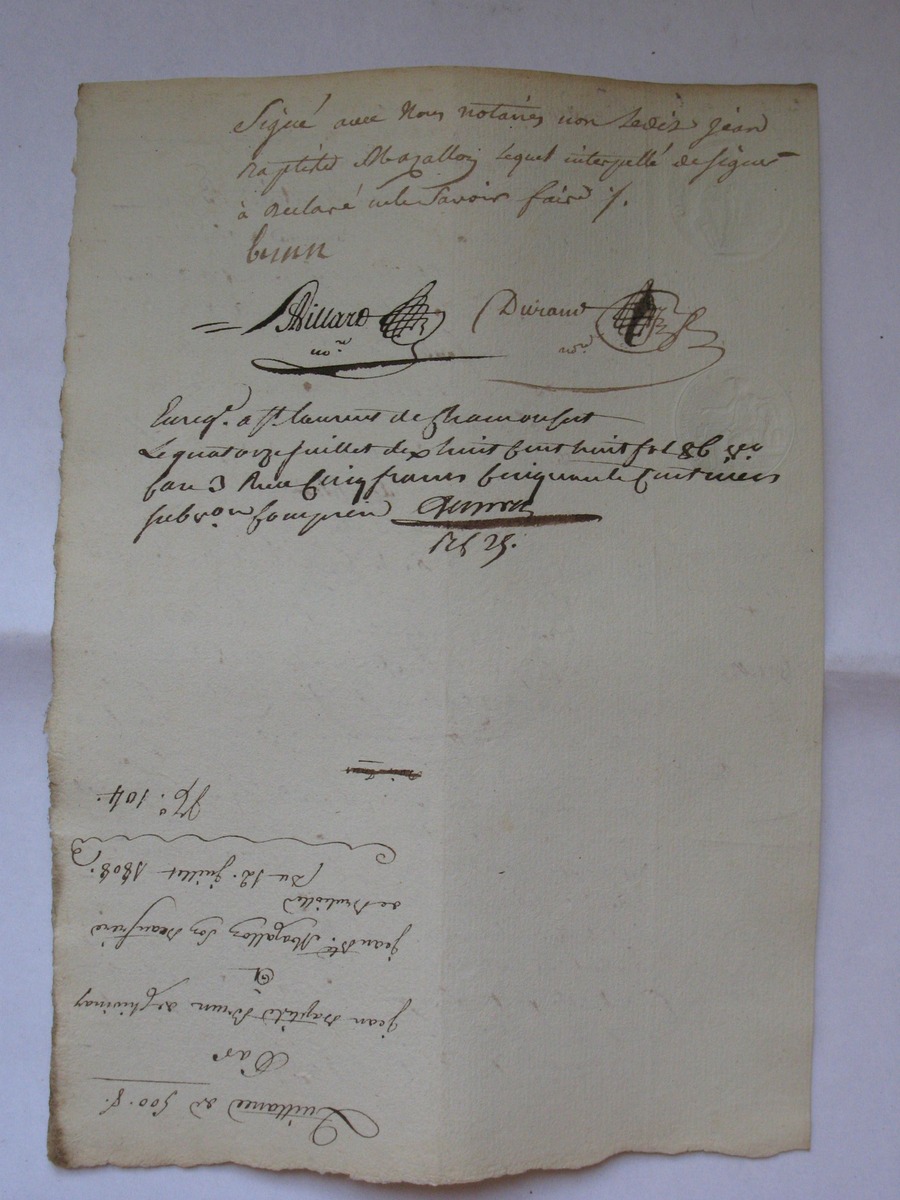 Signé avec Nous notaires non Ledit jean
Baptiste Magallon Lequel interpellé de signer
à declaré ne le Savoir faire /.
brun
Billard
no.re
Durand
no.re
Enreg.é a s.t laurent de Chamousset
Le quatorze juillet dix huit Cent huit f.o 86 v.o
Case 3 Recu Cinq francs Cinquante Centimes
subv.on Comprise
Quittance de 500 f.
Par
jean Baptiste Brun de chivinay
a
jean B.te Magallon son Beaufrere
de
Du 12. juillet 1808.
N.o 104.